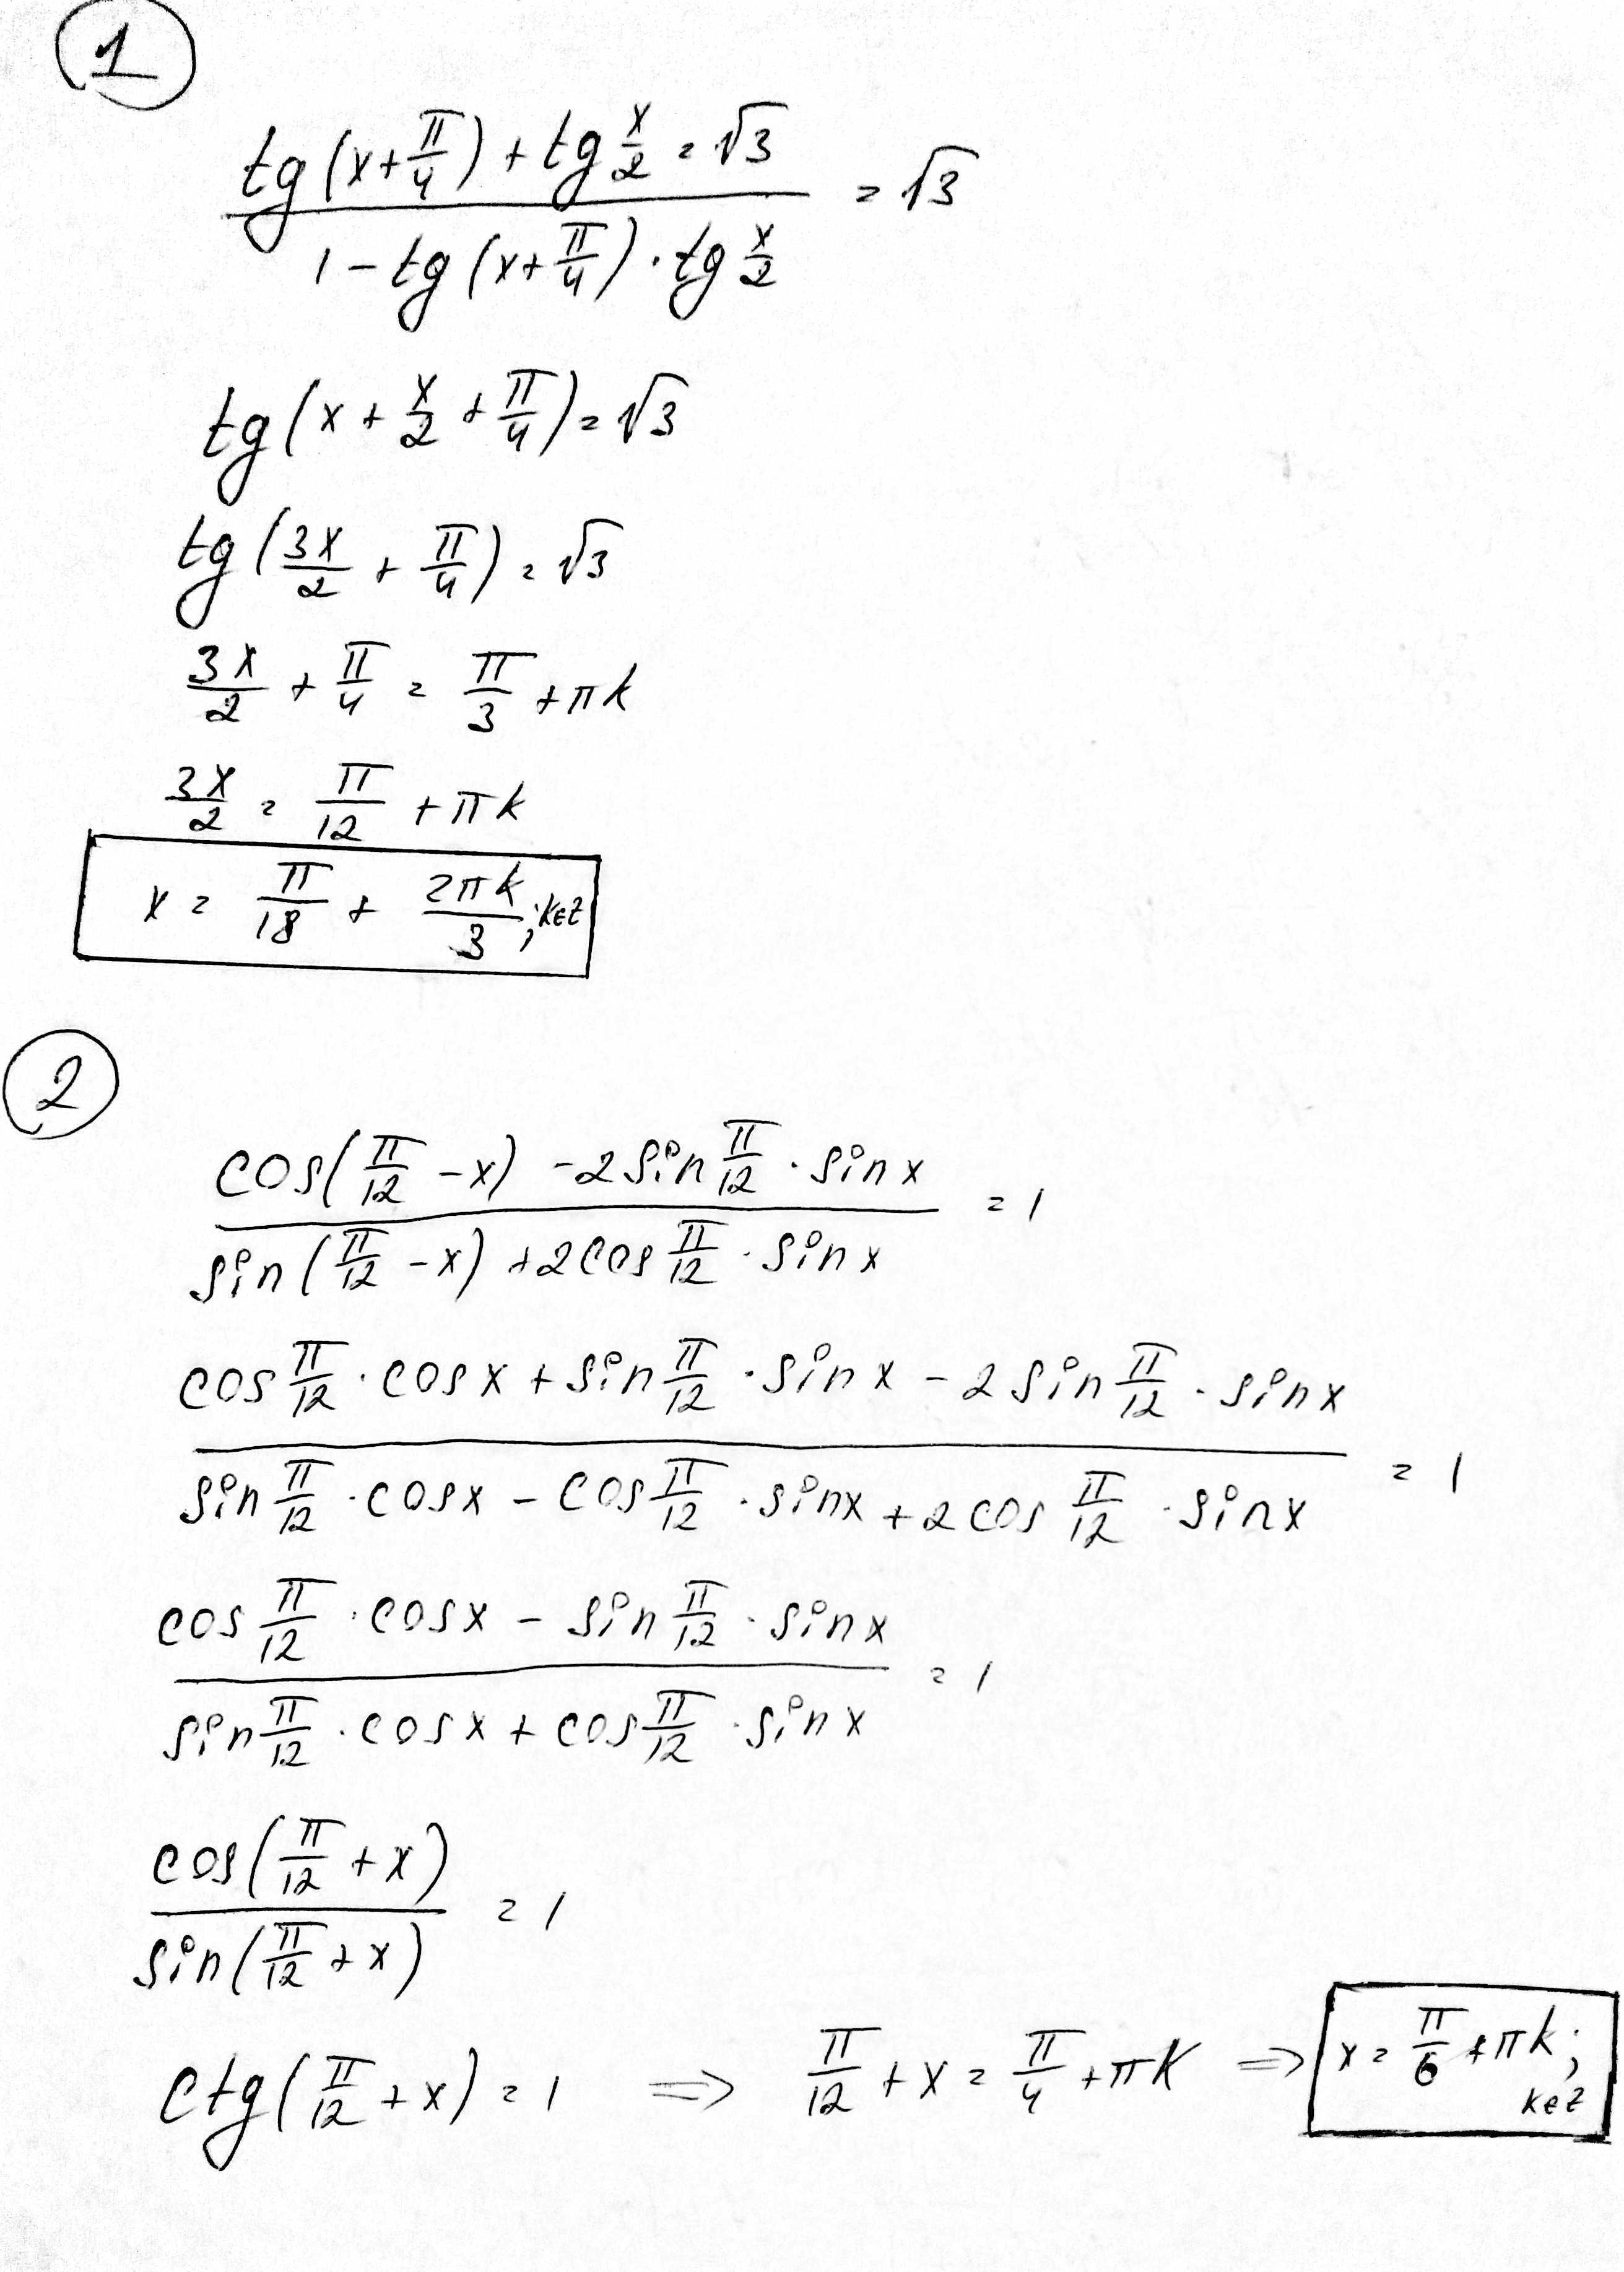 1
tg(x+π/4) + tg x/2 = √3 / 1 - tg(x+π/4) · tg x/2 = √3
tg(x + x/2 + π/4) = √3
tg(3x/2 + π/4) = √3
3x/2 + π/4 = π/3 + πk
3x/2 = π/12 + πk
x = π/18 + 2πk/3; k∈Z
2
cos(π/12 - x) - 2 sin π/12 · sin x / sin(π/12 - x) + 2 cos π/12 · sin x = 1
cos π/12 · cos x + sin π/12 · sin x - 2 sin π/12 · sin x / sin π/12 · cos x - cos π/12 · sin x + 2 cos π/12 · sin x = 1
cos π/12 · cos x - sin π/12 · sin x / sin π/12 · cos x + cos π/12 · sin x = 1
cos(π/12 + x) / sin(π/12 + x) = 1
ctg(π/12 + x) = 1 ⇒ π/12 + x = π/4 + πk ⇒ x = π/6 + πk; k∈Z